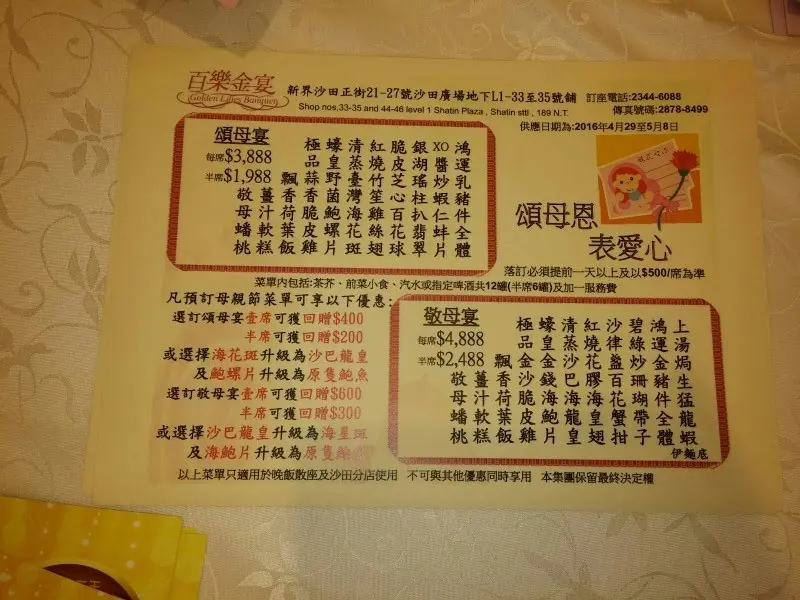 百樂金宴
Golden Lilies Banquet
新界沙田正街21-27號沙田廣場地下L1-33至35號舖 訂座電話:2344-6088
Shop nos,33-35 and 44-46 level 1 Shatin Plaza , Shatin sttl , 189 N.T. 傳真號碼:2878-8499
供應日期為:2016年4月29至5月8日
頌母宴
每席$3,888
半席$1,988
鴻運乳豬件全體
XO醬炒蝦仁蚌片
銀湖瑤柱扒翡翠
脆皮芝心百花球
紅燒竹笙雞絲翅
清蒸臺灣海花斑
蠔皇野菌鮑螺片
極品蒜香脆皮雞
飄香荷葉飯
薑汁軟糕
敬母蟠桃
頌母恩
表愛心
落訂必須提前一天以上及以$500/席為準
菜單內包括:茶芥、前菜小食、汽水或指定啤酒共12罐(半席6罐)及加一服務費
凡預訂母親節菜單可享以下優惠:
選訂頌母宴壹席可獲回贈$400
半席可獲回贈$200
或選擇海花斑升級為沙巴龍皇
及鮑螺片升級為原隻鮑魚
選訂敬母宴壹席可獲回贈$600
半席可獲回贈$300
或選擇沙巴龍皇升級為海星斑
及海鮑片升級為原隻
敬母宴
每席$4,888
半席$2,488
上湯焗生猛龍蝦
伊麵底
鴻運金豬件全體
碧綠炒珊瑚帶子
沙律盞百花蟹拑
紅燒花膠海皇翅
清蒸沙巴海龍皇
蠔皇金錢海鮑片
極品金沙脆皮雞
飄香荷葉飯
薑汁軟糕
敬母蟠桃
以上菜單只適用於晚飯散座及沙田分店使用 不可與其他優惠同時享用 本集團保留最終決定權